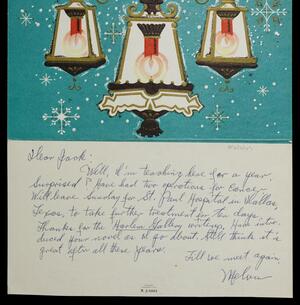 Melvin
Dear Jack:
Well, I'm teaching here for a year.
Surprised? Have had two operations for cancer
Will leave Sunday for St. Paul Hospital in Dallas,
Texas, to take further treatment for ten days.
Thanks for the Harlem Gallery writeup. Have intro-
duced your novel as I go about. Still think it is
great after all these years.
Till we meet again
Melvin